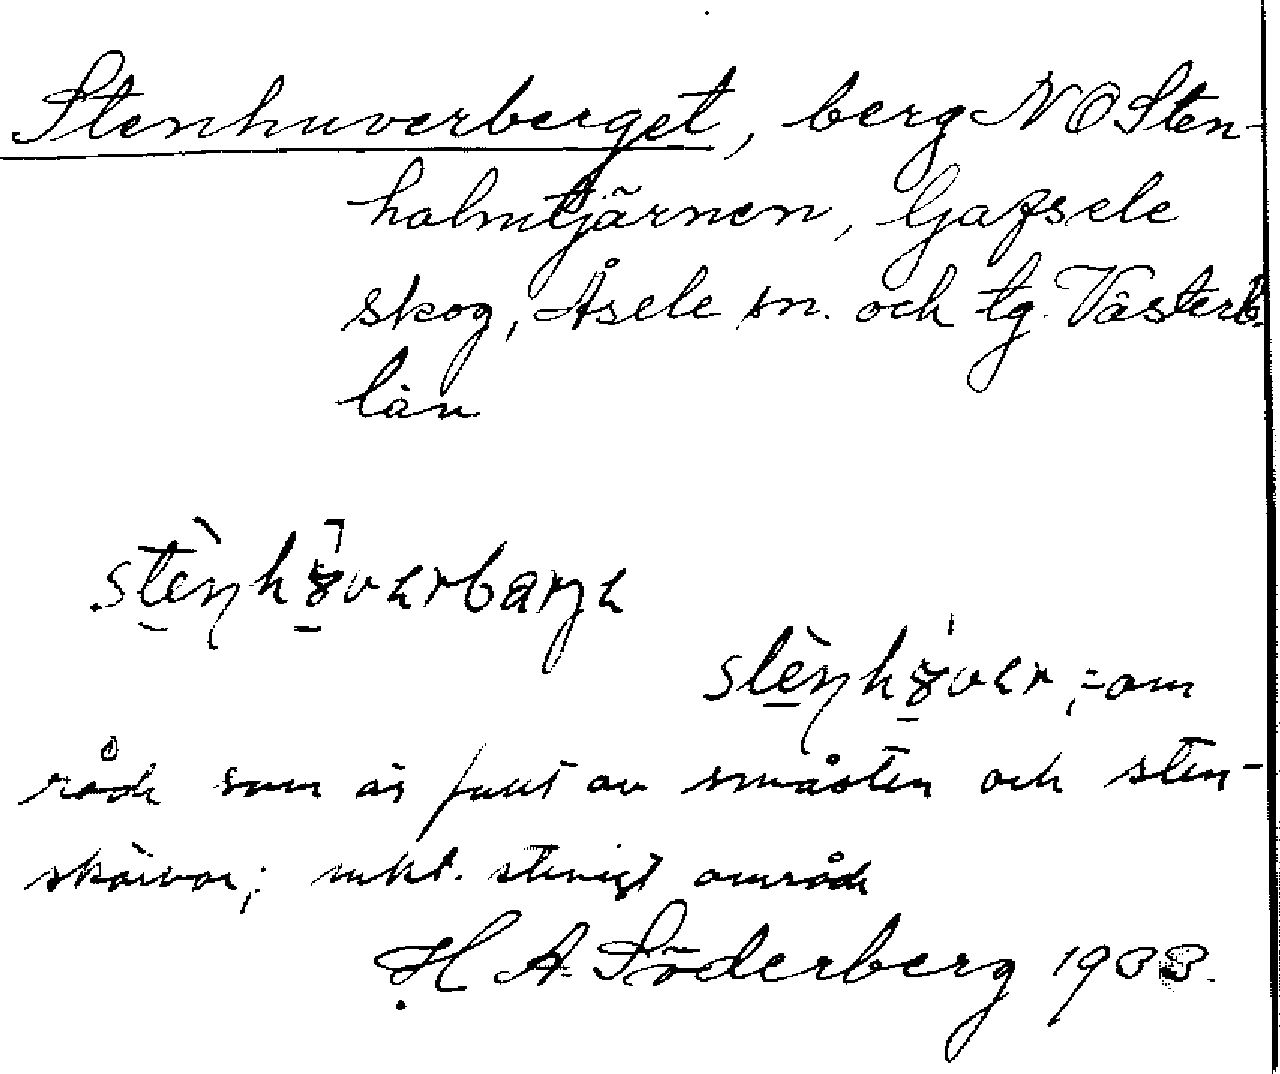 Stenhuverberget, berg NO Sten-
holmtjärnen, Gafsele
skog, Åsele sn. och tg. Västerb.
län
stènhȣ́verbarge
stènhȣ́ver, = om
råde som är fullt av småsten och sten-
skärvor; mkt. stenigt område
H A Söderberg 1933.